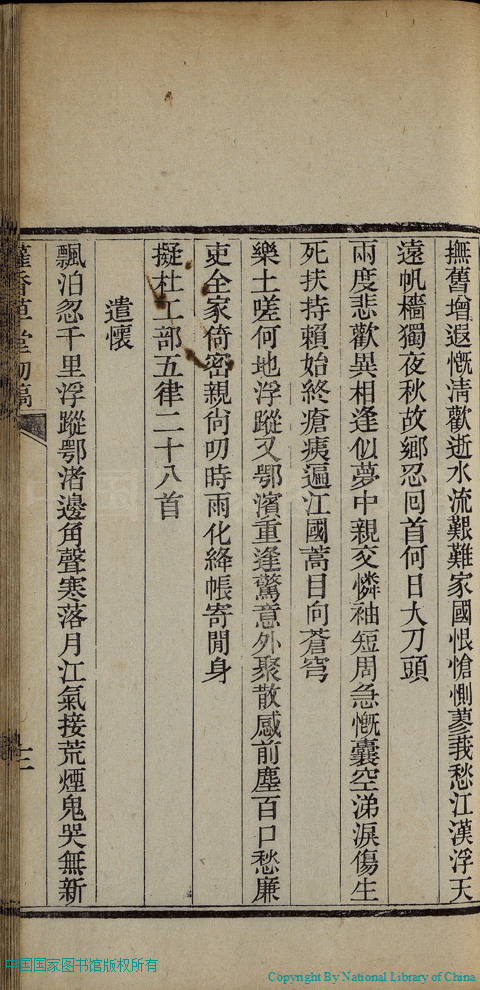 撫舊增遐慨清歡逝水流艱難家國恨愴惻蓼莪愁江漢浮天
遠帆檣獨夜秋故鄉忍囘首何日大刀頭
兩度悲歡異相逢似夢中親交憐袖短周急慨囊空涕淚傷生
死扶持賴始終瘡痍遍江國蒿目向蒼穹
樂土嗟何地浮蹤又鄂濱重逢驚意外聚散感前塵百口愁廉
吏全家倚密親尙叨時雨化絳帳寄閒身
擬杜工部五律二十八首
遣懷
飄泊忽千里浮蹤鄂渚邊角聲寒落月江氣接荒煙鬼哭無新
香草堂初稿
十二
中国国家图书馆版权所有
Copyright By National Library of China